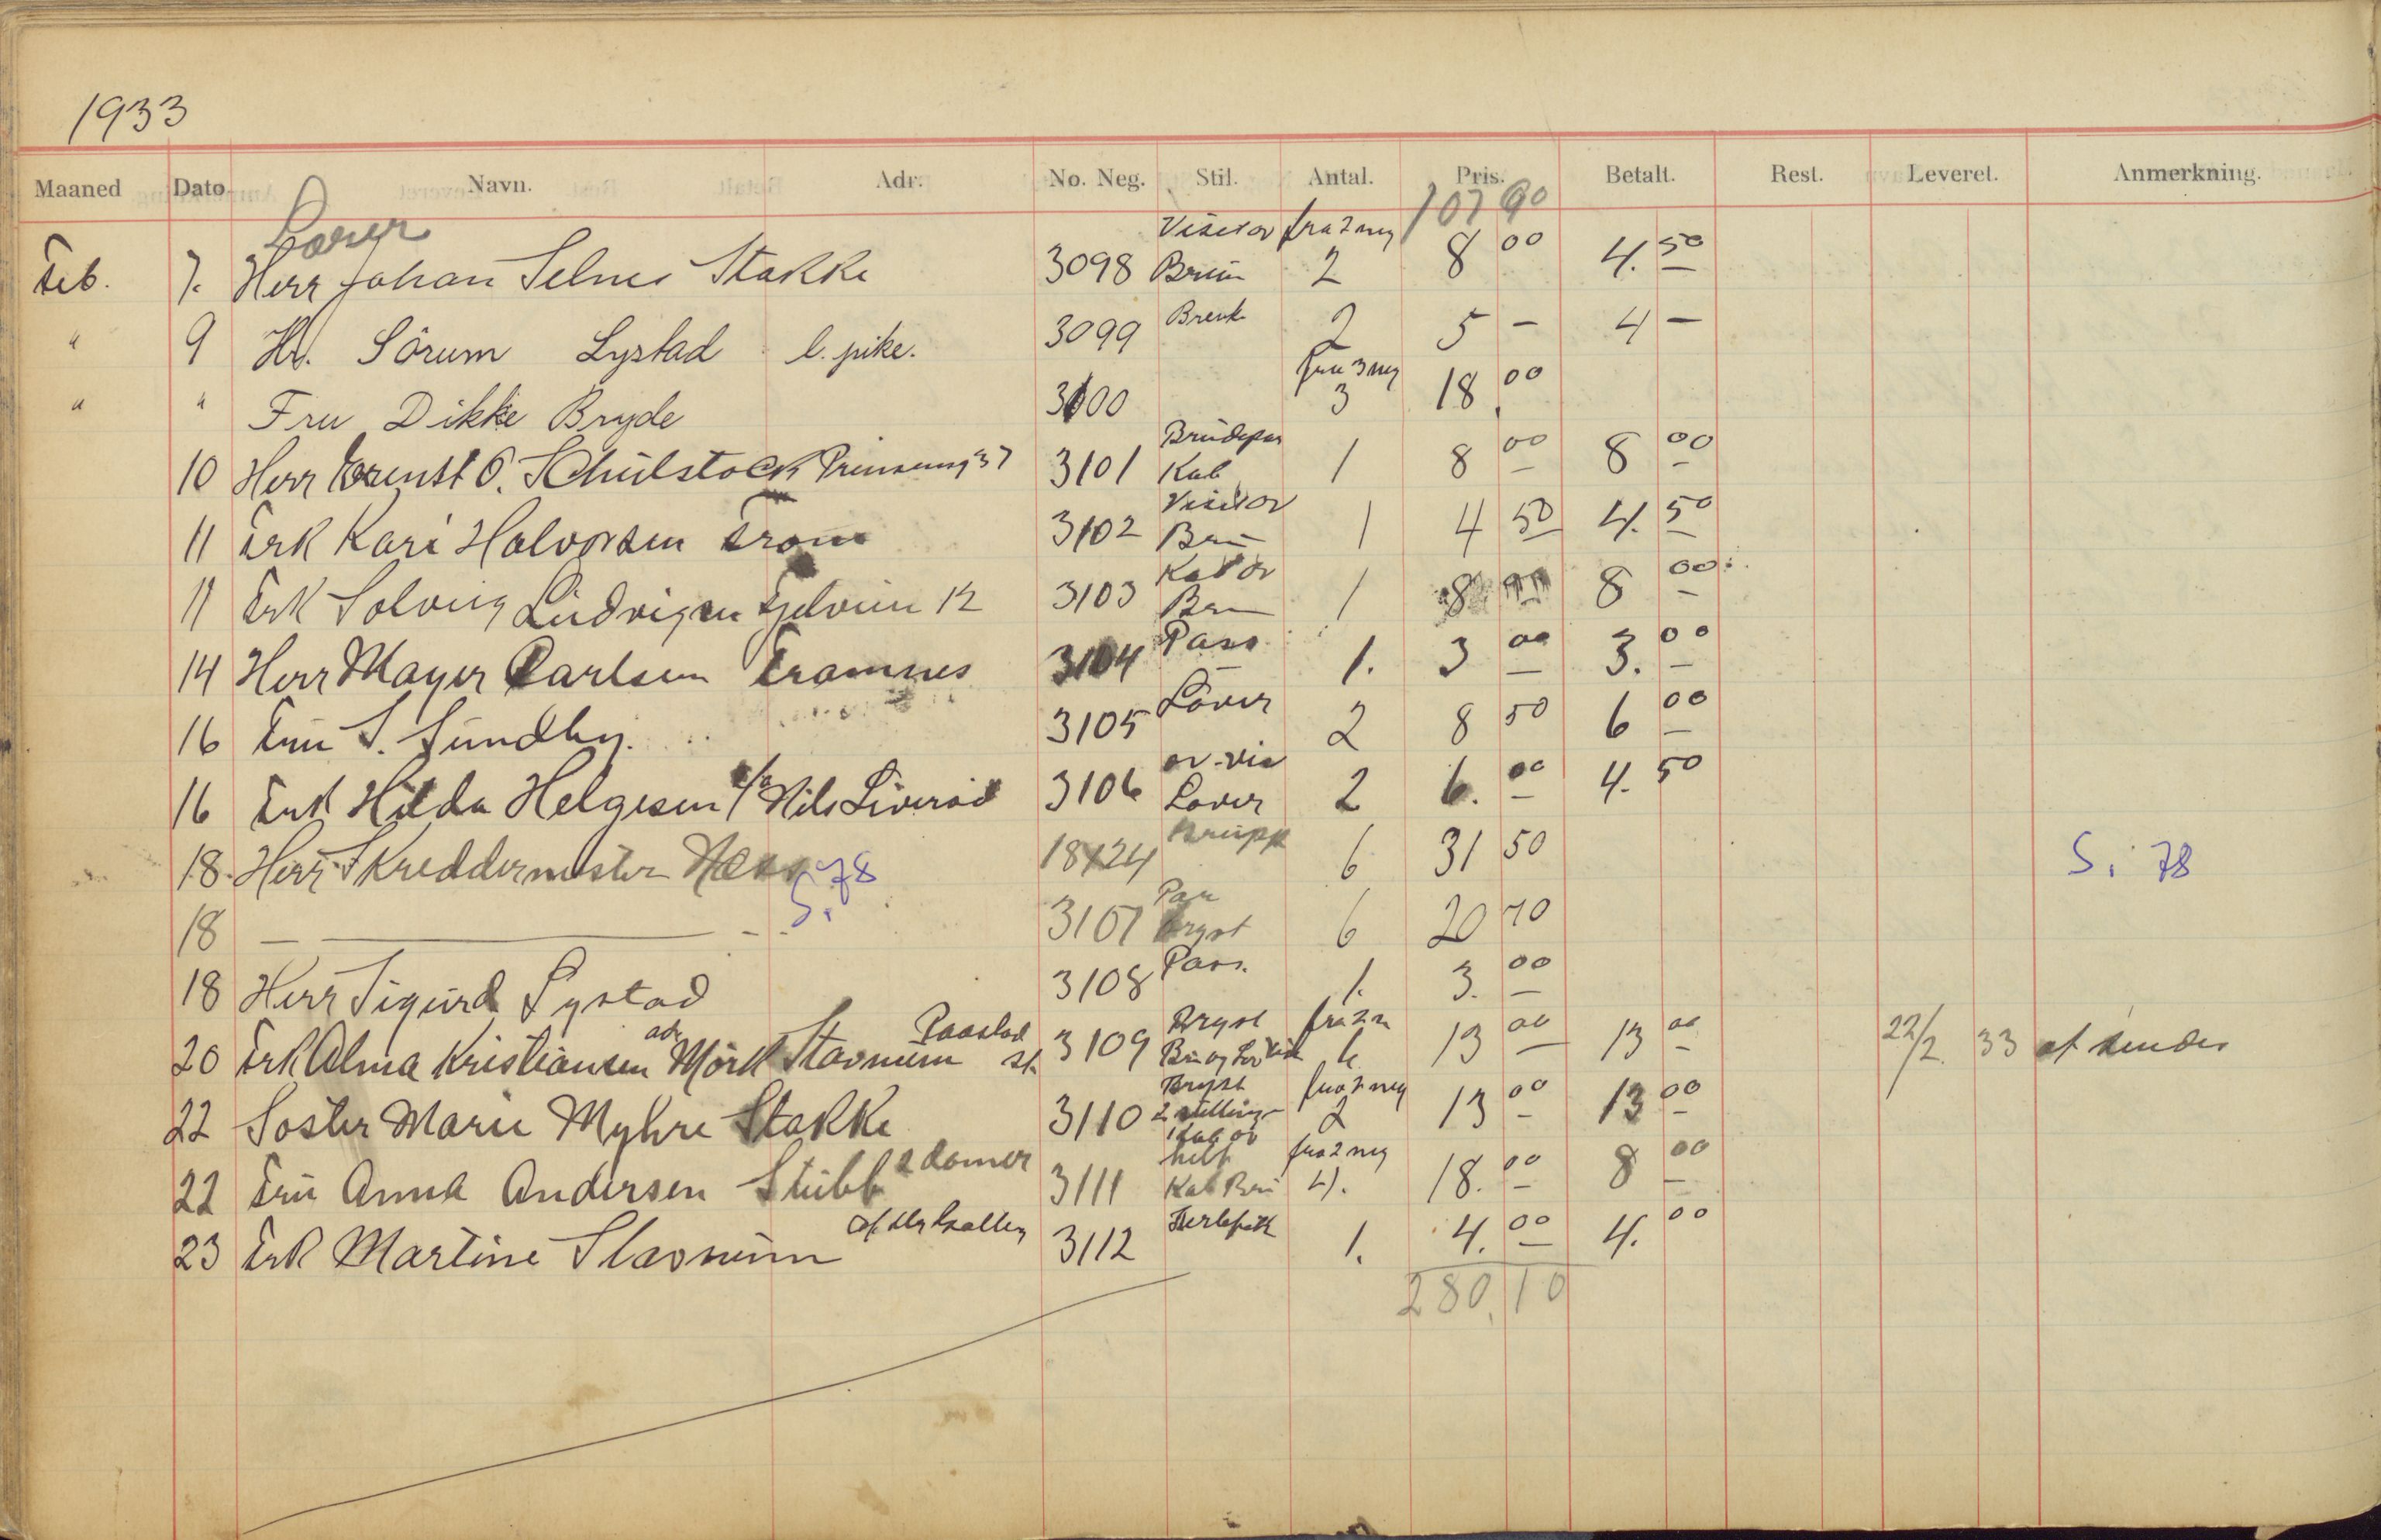 1933
Maaned Dato Navn. Adr. No. Neg. Stil. Antal. Pris. Betalt. Rest. Leveret. Anmerkning.
107 90
Feb. 7. Herr Johan Selnes Stakke 3098 Visitov Brun fra 2 neg 2 8 00 4. 50
" 9 Hr. Sörum Lystad l. pike. 3099 2 5 - 4 -
" " Fru Dikke Bryde 3100 fra 3 neg 3 18. 00
10 Herr Ernst O. Schulstock 37 3101 Brudepar Kab 1 8 00 8 00
11 Frk Kari Halvorsen From 3102 Visitov Brun 1 4 50 4. 50
11 Frk Solveig Ludvigsen 12 3103 Kab ov Brun 1 8 00 8 00
14 Herr Mayer Carlsen Framnes 3104 Pass 1. 3 00 3. 00
16 Fru S. Sundby. 3105 Löver 2 8 50 6 00
16 Frk Hilda Helgesen Nils Liverød 3106 ov-vis Lover 2 6. 00 4. 50
18. Herr Skreddermester Næss S. 78 18724 Grupp 6 31 50 S. 78
18 — — 3107 Par Bryst 6 20 70
18 Herr Sigurd Lystad 3108 Pass. 1. 3. 00
20 Frk Alma Kristiansen adr Mörk Stavnum Raastad st. 3109 Bryst fra 2 n 13 00 13 00 22/2 33 at sendes
22 Soster Marie Myhre Stakke 3110 Bryst 2 stilling fra 2 neg 2 13 00 13 00
22 Fru Anna Andersen Stubb 2 damer 3111 1 kab ov helf Kab Brun fra 2 neg 4). 18. 00 8 00
23 Frk Martine Slavnum 3112 1. 4. 00 4. 00
280,10